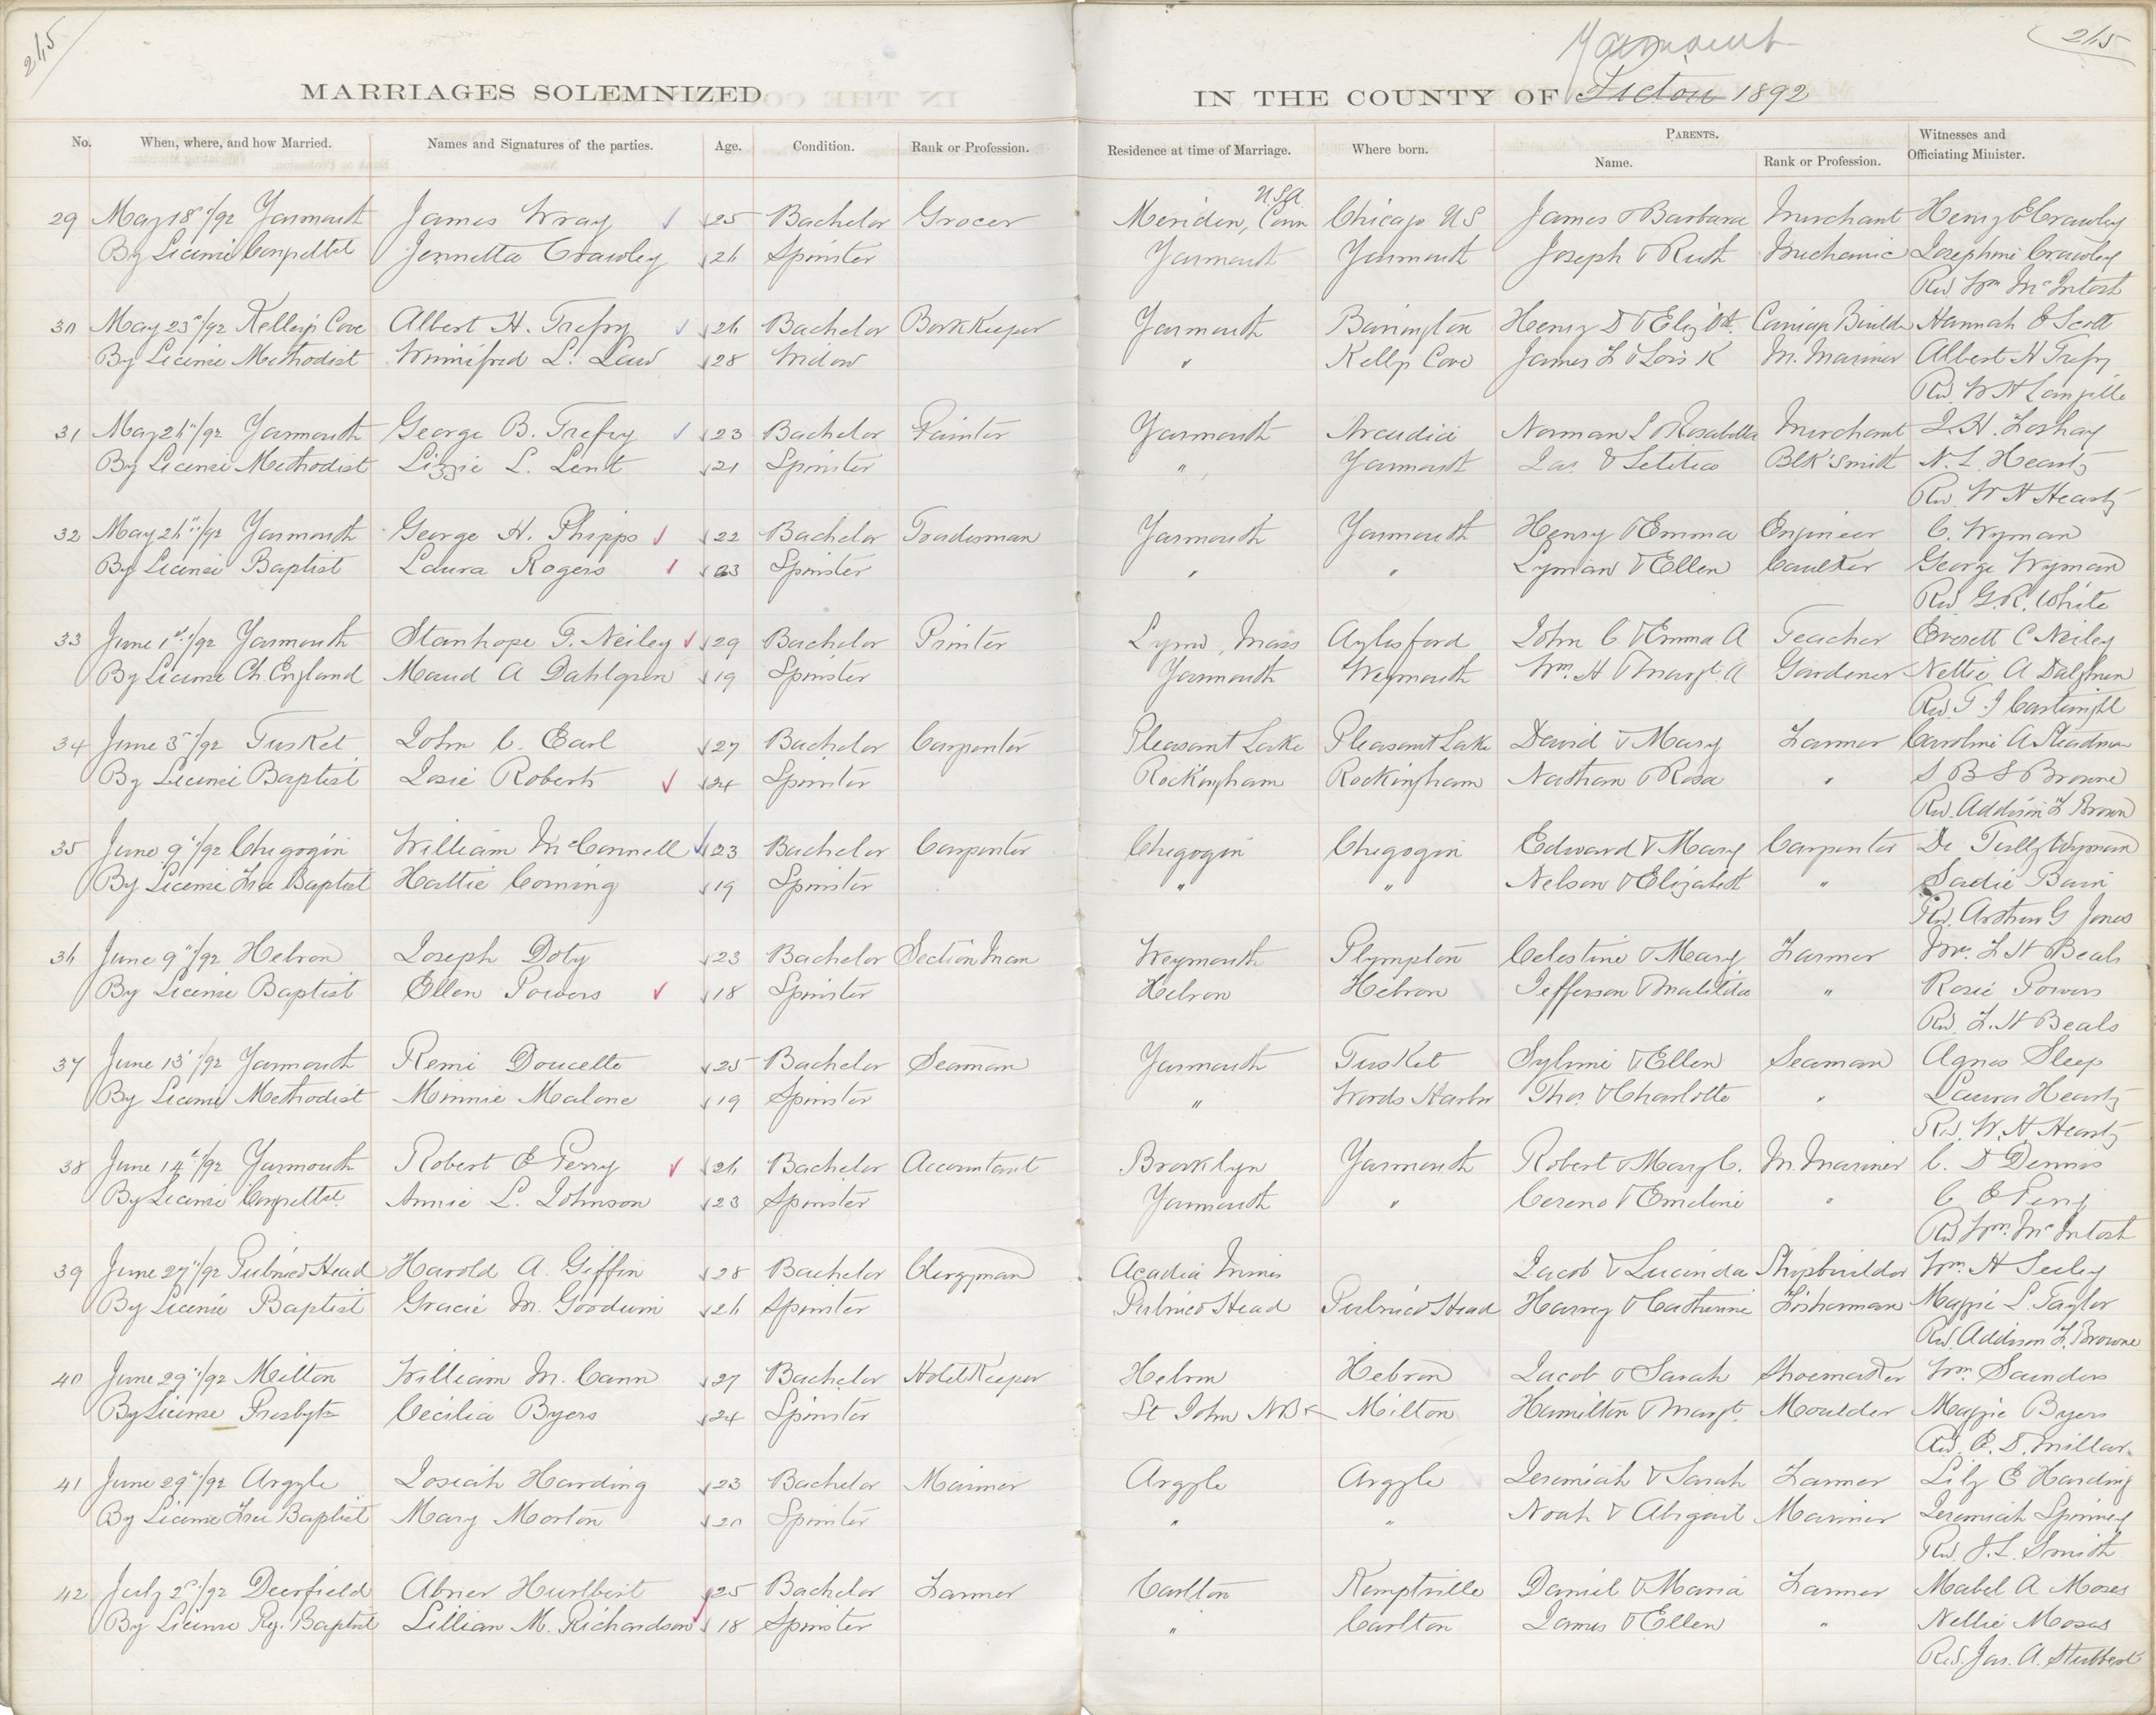 245
Yarmouth
245
MARRIAGES SOLEMNIZED IN THE COUNTY OF Pictou 1892
No. When, where, and how Married. Names and Signatures of the parties. Age. Condition. Rank or Profession. Residence at time of Marriage. Where born. PARENTS. Name. Rank or Profession. Witnesses and Officiating Minister.
U.S.A.
29 May 18"/92 Yarmouth James Wray 25 Bachelor Grocer Meriden, Conn Chicago US James & Barbara Merchant Henry E Crawley
By License Congettal Jennetta Crawley 26 Spinster Yarmouth Yarmouth Joseph & Ruth Mechanic Josephine Crawley
Rev Wm McIntosh
30 May 23"/92 Kelley's Cove Albert H. Trefry 26 Bachelor Book Keeper Yarmouth Barrington Henry D & Elizbth Carriage Builder Hannah E Scott
By License Methodist Winnifred L. Law 28 Widow " Kellys Cove James L & Lois K M. Mariner Albert H Trefry
Rev. W H Langille
31 May 26"/92 Yarmouth George B. Trefry 23 Bachelor Painter Yarmouth Arcadia Norman S & Rosabella Merchant J. H.
By License Methodist Lizzie L. Lent 21 Spinster " Yarmouth Jas. & Letitia Blk'smith N. L. Heartz
Rev W H Heartz
32 May 26"/92 Yarmouth George H. Phipps 22 Bachelor Tradesman Yarmouth Yarmouth Henry & Emma Engineer C. Wyman
By License Baptist Laura Rogers 23 Spinster " " Lyman & Ellen Caulker George Wyman
Rev G. R. White
33 June 1st/92 Yarmouth Stanhope F. Neiley 29 Bachelor Printer Lynn, Mass Aylesford John C. & Emma A Teacher Everett C Neiley
By License Ch. England Maud A Dahlgren 19 Spinster Yarmouth Weymouth Wm. H & Margt. A Gardener Nettie A Dalghren
Rev. T. J Cartwright
34 June 3"/92 Tusket John C. Earl 27 Bachelor Carpenter Pleasant Lake Pleasant Lake David & Mary Farmer Caroline A Steadman
By License Baptist Josie Roberts 24 Spinster Rockingham Rockingham Nathan & Rosa " S B S Browne
Rev. Addison F Brown
35 June 9"/92 Chegogin William McConnell 23 Bachelor Carpenter Chegogin Chegogin Edward & Mary Carpenter De Tully Wyman
By License Free Baptist Hattie Corning 19 Spinster " " Nelson & Elizabeth " Sadie Bain
Rev. Arthur G Jones
36 June 9"/92 Hebron Joseph Doty 23 Bachelor Section Man Weymouth Plympton Celestine & Mary Farmer Mrs. F. H Beals
By License Baptist Ellen Powers 18 Spinster Hebron Hebron Jefferson & Matilda " Rosie Powers
Rev. F. H Beals
37 June 13"/92 Yarmouth Remi Doucette 25 Bachelor Seaman Yarmouth Tusket Sylvine & Ellen Seaman Agnes Sleep
By License Methodist Minnie Malone 19 Spinster " Woods Harbor Thos. & Charlotte " Laura Heartz
Rev. W. H. Heartz
38 June 14"/92 Yarmouth Robert E Perry 26 Bachelor Accountant Brooklyn Yarmouth Robert & Mary C. M. Mariner C. D Dennis
By License Congettal Annie L. Johnson 23 Spinster Yarmouth " Cereno & Emeline " C E Perry
Rev Wm. McIntosh
39 June 27"/92 Pubnico Head Harold A. Giffin 28 Bachelor Clergyman Acadia Mines Jacob & Lucinda Shipbuilder Wm. H Seeley
By License Baptist Gracie M. Goodwin 26 Spinster Pubnico Head Pubnico Head Harvey & Catherine Fisherman Maggie L. Taylor
Rev. Addison F. Browne
40 June 29"/92 Milton William M. Cann 27 Bachelor Hotel Keeper Hebron Hebron Jacob & Sarah Shoemaker Wm. Saunders
By License Presbytn Cecilia Byers 24 Spinster St John NB Milton Hamilton & Margt. Moulder Maggie Byers
Rev. E. D. Millar.
41 June 29"/92 Argyle Josiah Harding 23 Bachelor Mariner Argyle Argyle Jeremiah & Sarah Farmer Lily E Harding
By License Free Baptist Mary Morton 20 Spinster " " Noah & Abigail Mariner Jeremiah Spinney
Rev. J. L. Smith
42 July 2"/92 Deerfield Abner Hurlbert 25 Bachelor Farmer Carlton Kemptville Daniel & Maria Farmer Mabel A Moses
By License Reg. Baptist Lillian M. Richardson 18 Spinster " Carlton James & Ellen " Nellie Moses
Rev. Jas. A. Stubbert